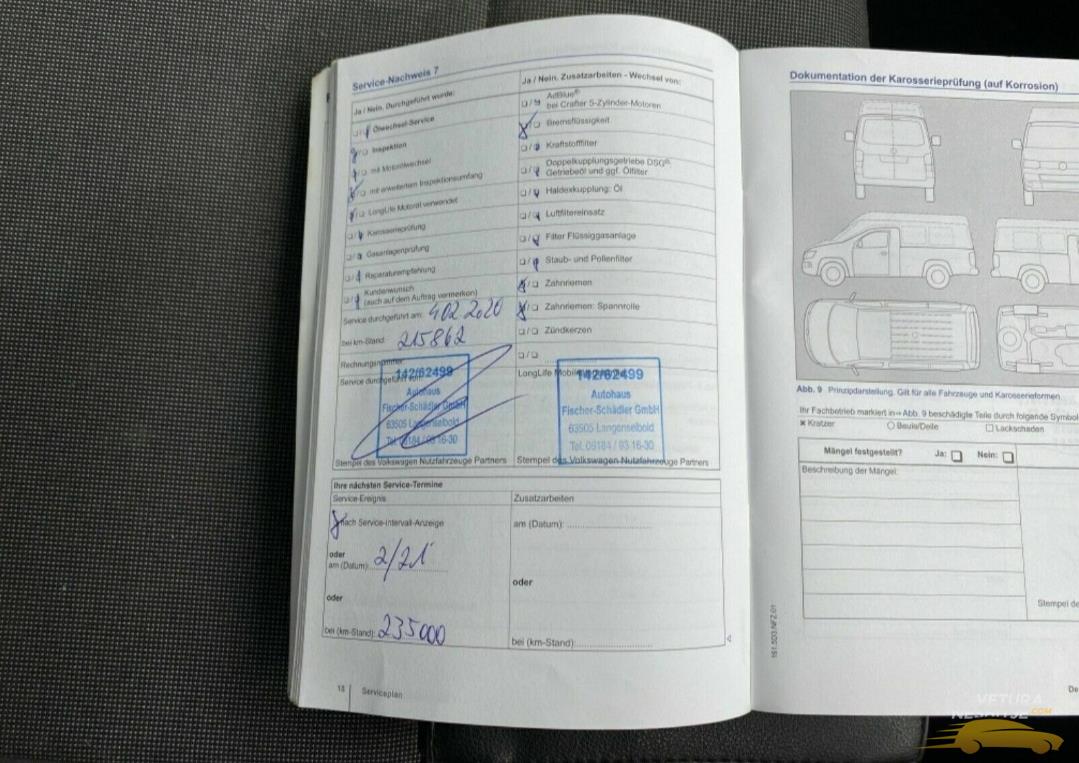 Service-Nachweis 7
Ja / Nein. Durchgeführt wurde:
Ölwechsel-Service
Inspektion
mit Motorölwechsel
mit erweitertem Inspektionsumfang
LongLife Motoröl verwendet
Karosserieprüfung
Gasanlagenprüfung
Reparaturempfehlung
Kundenwunsch
(auch auf dem Auftrag vermerken)
Service durchgeführt am: 4.02.2020
bei km-Stand: 215862
Rechnungsnummer:
Service durchgeführt
142/62499
Autohaus
Fischer-Schädler GmbH
63505 Langenselbold
Tel. 06184 / 93 16-30
Stempel des Volkswagen Nutzfahrzeuge Partners
Ja / Nein. Zusatzarbeiten - Wechsel von:
AdBlue®
bei Crafter 5-Zylinder-Motoren
Bremsflüssigkeit
Kraftstofffilter
Doppelkupplungsgetriebe DSG®:
Getriebeöl und ggf. Ölfilter
Haldexkupplung: Öl
Luftfiltereinsatz
Filter Flüssiggasanlage
Staub- und Pollenfilter
Zahnriemen
Zahnriemen: Spannrolle
Zündkerzen
LongLife
142/62499
Autohaus
Fischer-Schädler GmbH
63505 Langenselbold
Tel. 06184 / 93 16-30
Stempel des Volkswagen Nutzfahrzeuge Partners
Ihre nächsten Service-Termine
Service-Ereignis
nach Service-Intervall-Anzeige
oder
am (Datum): 2/21
oder
bei (km-Stand): 235000
Zusatzarbeiten
am (Datum):
oder
bei (km-Stand):
18 Serviceplan
Dokumentation der Karosserieprüfung (auf Korrosion)
Abb. 9 Prinzipdarstellung. Gilt für alle Fahrzeuge und Karosserieformen
Ihr Fachbetrieb markiert in ⇒ Abb. 9 beschädigte Teile durch folgende Symbol
× Kratzer ○ Beule/Delle □ Lackschaden
Mängel festgestellt? Ja: □ Nein: □
Beschreibung der Mängel:
Stempel de
151.5D3.NFZ.01
De
VETURA
NEGARJE.COM